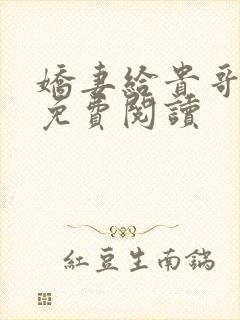 嬌妻給貴哥
免費閱讀
紅豆生南鍋